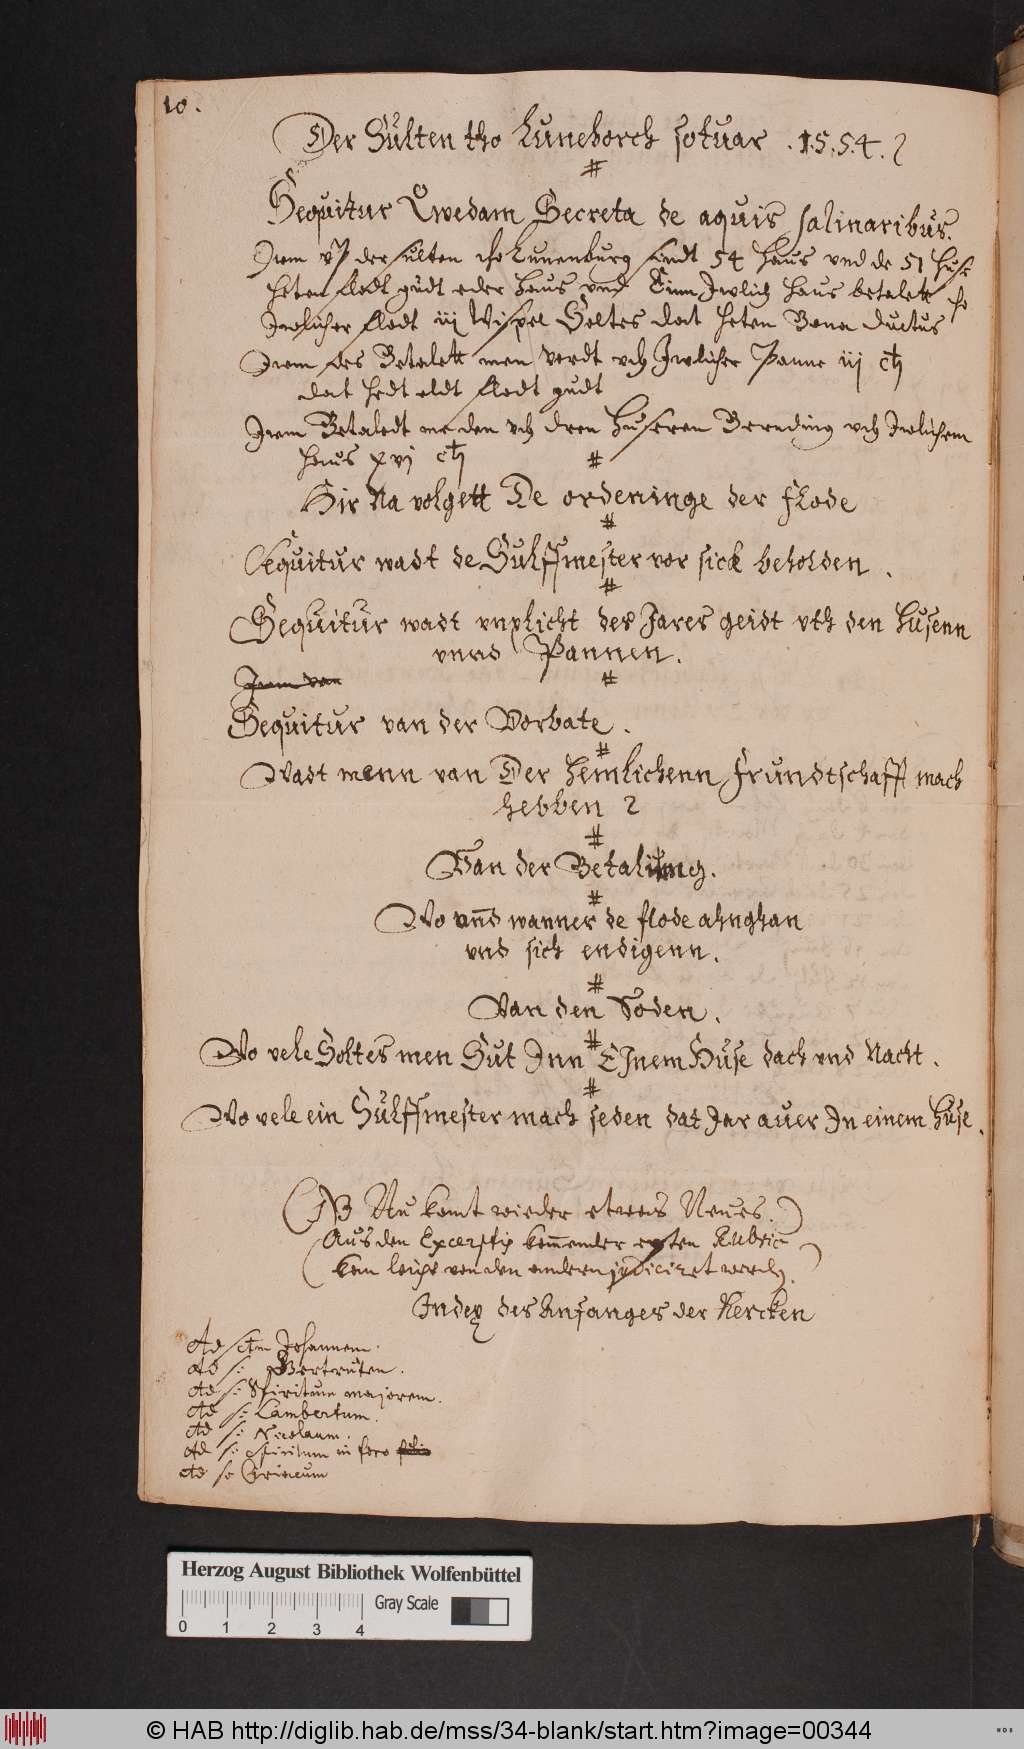 10.
Der Sulten tho Luneborch sotuar . 1.5.5.4.
#
Sequitur Qwedam Secreta de aquis salinaribus.
Item vp der sulten tho Lunenburg sindt 54 Haus vnd de 51 Huse
heten flodt gudt eder Haus vnd Einn Iwlich Haus betalett
Iwlicher flodt iij Wispel Soltes dat heten Bona ductus
Item des Betalett men vordt vth Iwlicher Panne iij
dat hedt oldt flodt gudt
Item Betaledt me den vth dren Huseren Bernding vth Iwlichem
Haus xvj
#
Hir Na volgett De ordeninge der flode
#
Sequitur wadt de Sulffmester vor sick beholden .
#
Sequitur wadt vnplicht des Jares geidt vth den Husenn
vnnd Pannen.
Item van
#
Sequitur van der Vorbate .
#
Wadt menn van Der Hemlickenn Frundtschafft mach
hebben
#
Van der Betaling.
#
Wo vnnd wanner de flode ahnghan
vnd sick endigenn.
#
Van den Soden .
#
Wo vele Soltes men Sut Inn EInem Huse dach vnd Nacht .
#
Wo vele ein Sulffmester mach seden dat Jar auer In einem Huse .
(NB Nu komt wieder etwas Neues.)
(Aus den Excerptis kommender ersten Rubric
kan leicht von den andern judiciret werden.)
Index des Anfanges der Kercken
Ad sctm Johannem.
Ad s: Gertruten.
Ad s: Spiritum majorem.
Ad s: Lambertum.
Ad s: Nicolaum.
Ad s: Spiritum in foro
Ad s: Ciriacum
Herzog August Bibliothek Wolfenbüttel
Gray Scale
0 1 2 3 4
© HAB http://diglib.hab.de/mss/34-blank/start.htm?image=00344